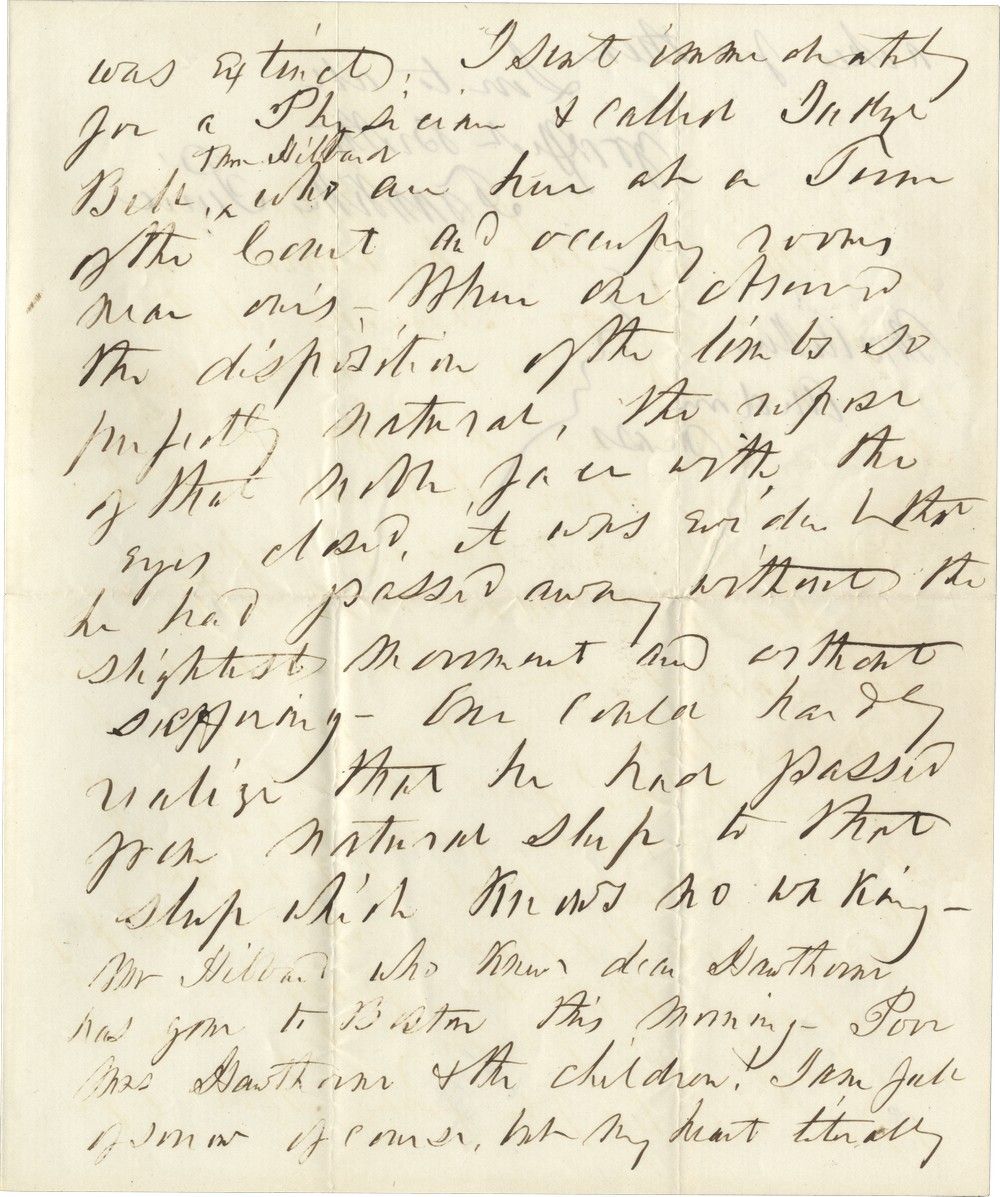 was extinct. I sent immediately
for a Physician & called Judge
Thos Hibbard
Bell, who are here at a Term
of the Court and occupy rooms
near ours - When one observed
the disposition of the limbs so
perfectly natural, the repose
of that noble face with the
eyes closed, it was evident that
he had passed away without the
slightest movement and without
suffering - One could hardly
realize that he had passed
from natural sleep to that
sleep which knows no waking -
Mr Hibbard who knew dear Hawthorne
has gone to Boston this morning - Poor
Mrs Hawthorne & the children! I am full
of sorrow of course, but my heart literally